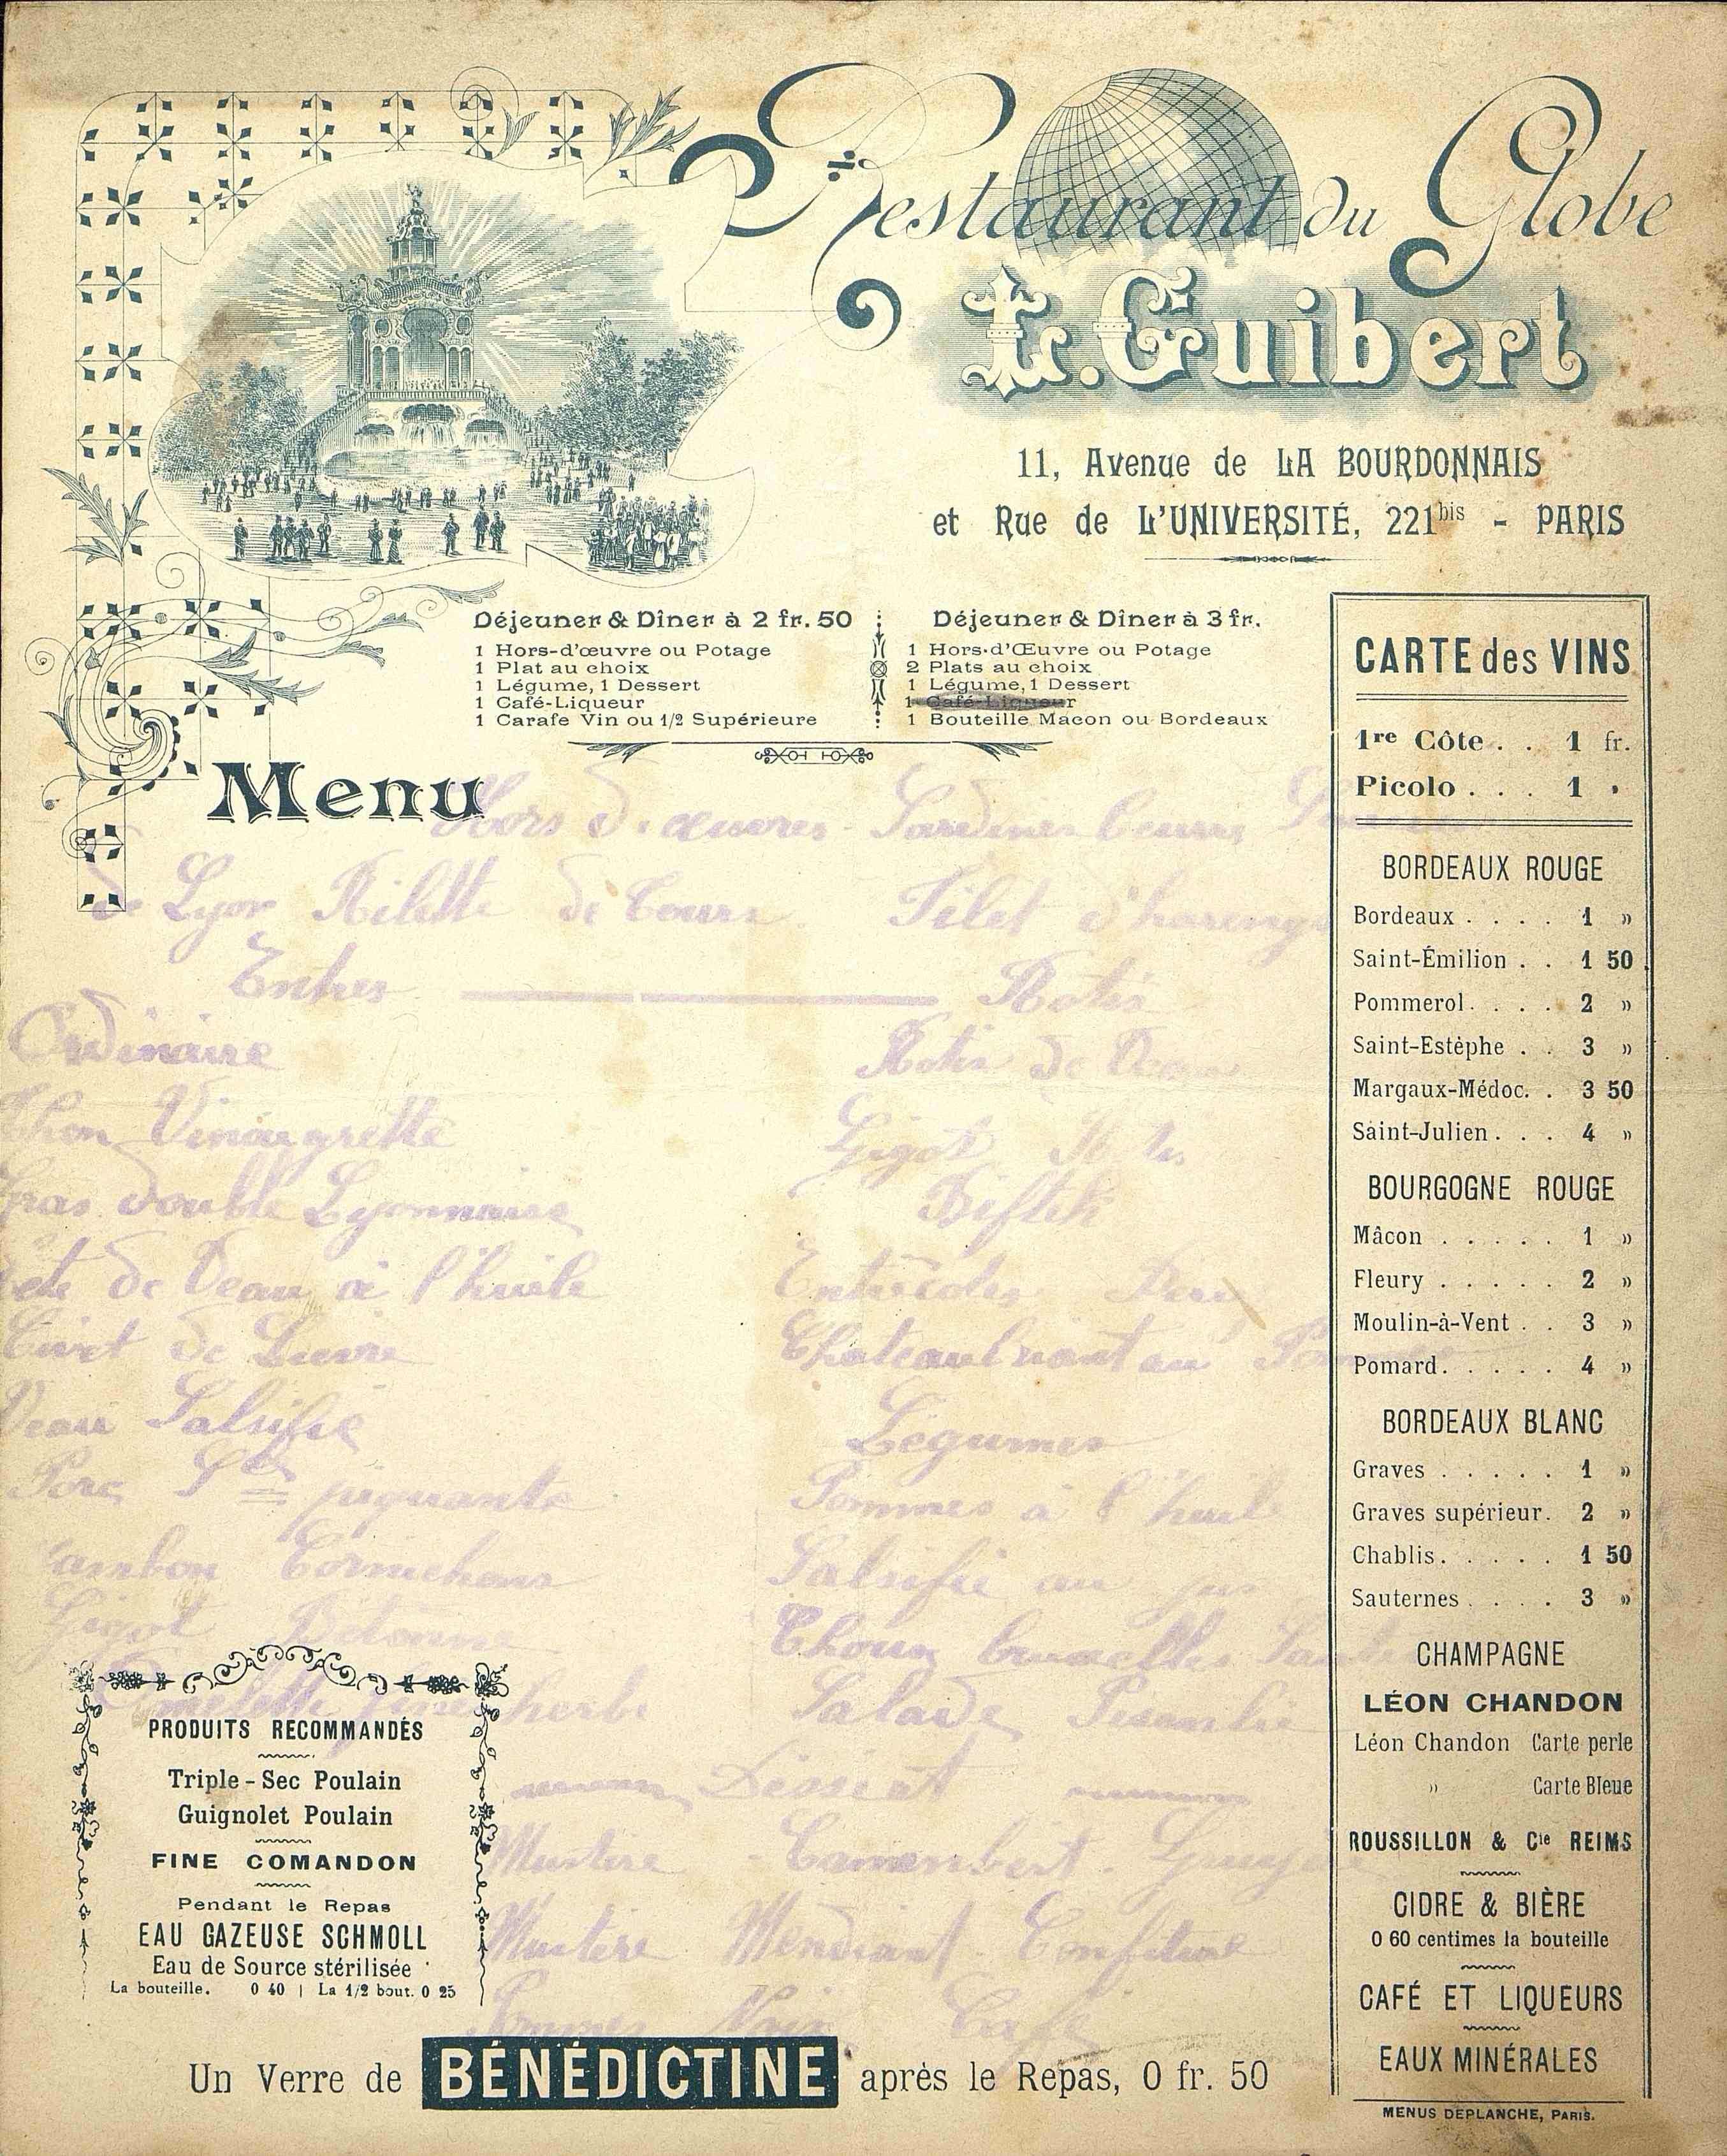 Restaurant du Globe
L. Guibert
11, Avenue de LA BOURDONNAIS
et Rue de L'UNIVERSITÉ, 221bis - PARIS
Déjeuner & Dîner à 2 fr. 50
1 Hors-d'œuvre ou Potage
1 Plat au choix
1 Légume, 1 Dessert
1 Café-Liqueur
1 Carafe Vin ou 1/2 Supérieure
Déjeuner & Dîner à 3 fr.
1 Hors-d'Œuvre ou Potage
2 Plats au choix
1 Légume, 1 Dessert
1 Café-Liqueur
1 Bouteille Macon ou Bordeaux
Menu
Hors d'œuvres - Sardines beurre
de Lyon Rilette de Tours Filet d'harengs
Entres
Ordinaire
Thon Vinaigrette
Gras double Lyonnaise
Tete de Veau à l'huile
Civet de Lievre
Veau Salsifie
Porc Sce piquante
Jambon Cornichons
Gigot
Omelette fines herbe
Rotis
Rotis de Veau
Gigot
Biftek
Entrecotes
Chateaubriant au Pommes
Légumes
Pommes à l'huile
Salsifie au jus
Choux bruxelles
Salade
Dessert
Camembert - Gruyère
Mendiant - Confiture
Café
PRODUITS RECOMMANDÉS
Triple-Sec Poulain
Guignolet Poulain
FINE COMANDON
Pendant le Repas
EAU GAZEUSE SCHMOLL
Eau de Source stérilisée
La bouteille. 0 40 | La 1/2 bout. 0 25
Un Verre de BÉNÉDICTINE après le Repas, 0 fr. 50
CARTE des VINS
1re Côte . . 1 fr.
Picolo . . . 1 »
BORDEAUX ROUGE
Bordeaux . . . . 1 »
Saint-Émilion . . 1 50
Pommerol. . . . 2 »
Saint-Estèphe . . 3 »
Margaux-Médoc. . 3 50
Saint-Julien . . . 4 »
BOURGOGNE ROUGE
Mâcon . . . . . 1 »
Fleury . . . . . 2 »
Moulin-à-Vent . . 3 »
Pomard. . . . . 4 »
BORDEAUX BLANC
Graves . . . . . 1 »
Graves supérieur. 2 »
Chablis. . . . . 1 50
Sauternes . . . . 3 »
CHAMPAGNE
LÉON CHANDON
Léon Chandon Carte perle
» Carte Bleue
ROUSSILLON & Cie REIMS
CIDRE & BIÈRE
0 60 centimes la bouteille
CAFÉ ET LIQUEURS
EAUX MINÉRALES
MENUS DEPLANCHE, PARIS.